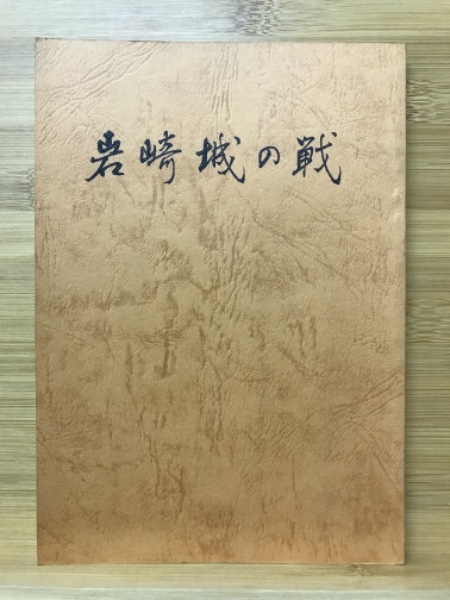 岩崎城の戦